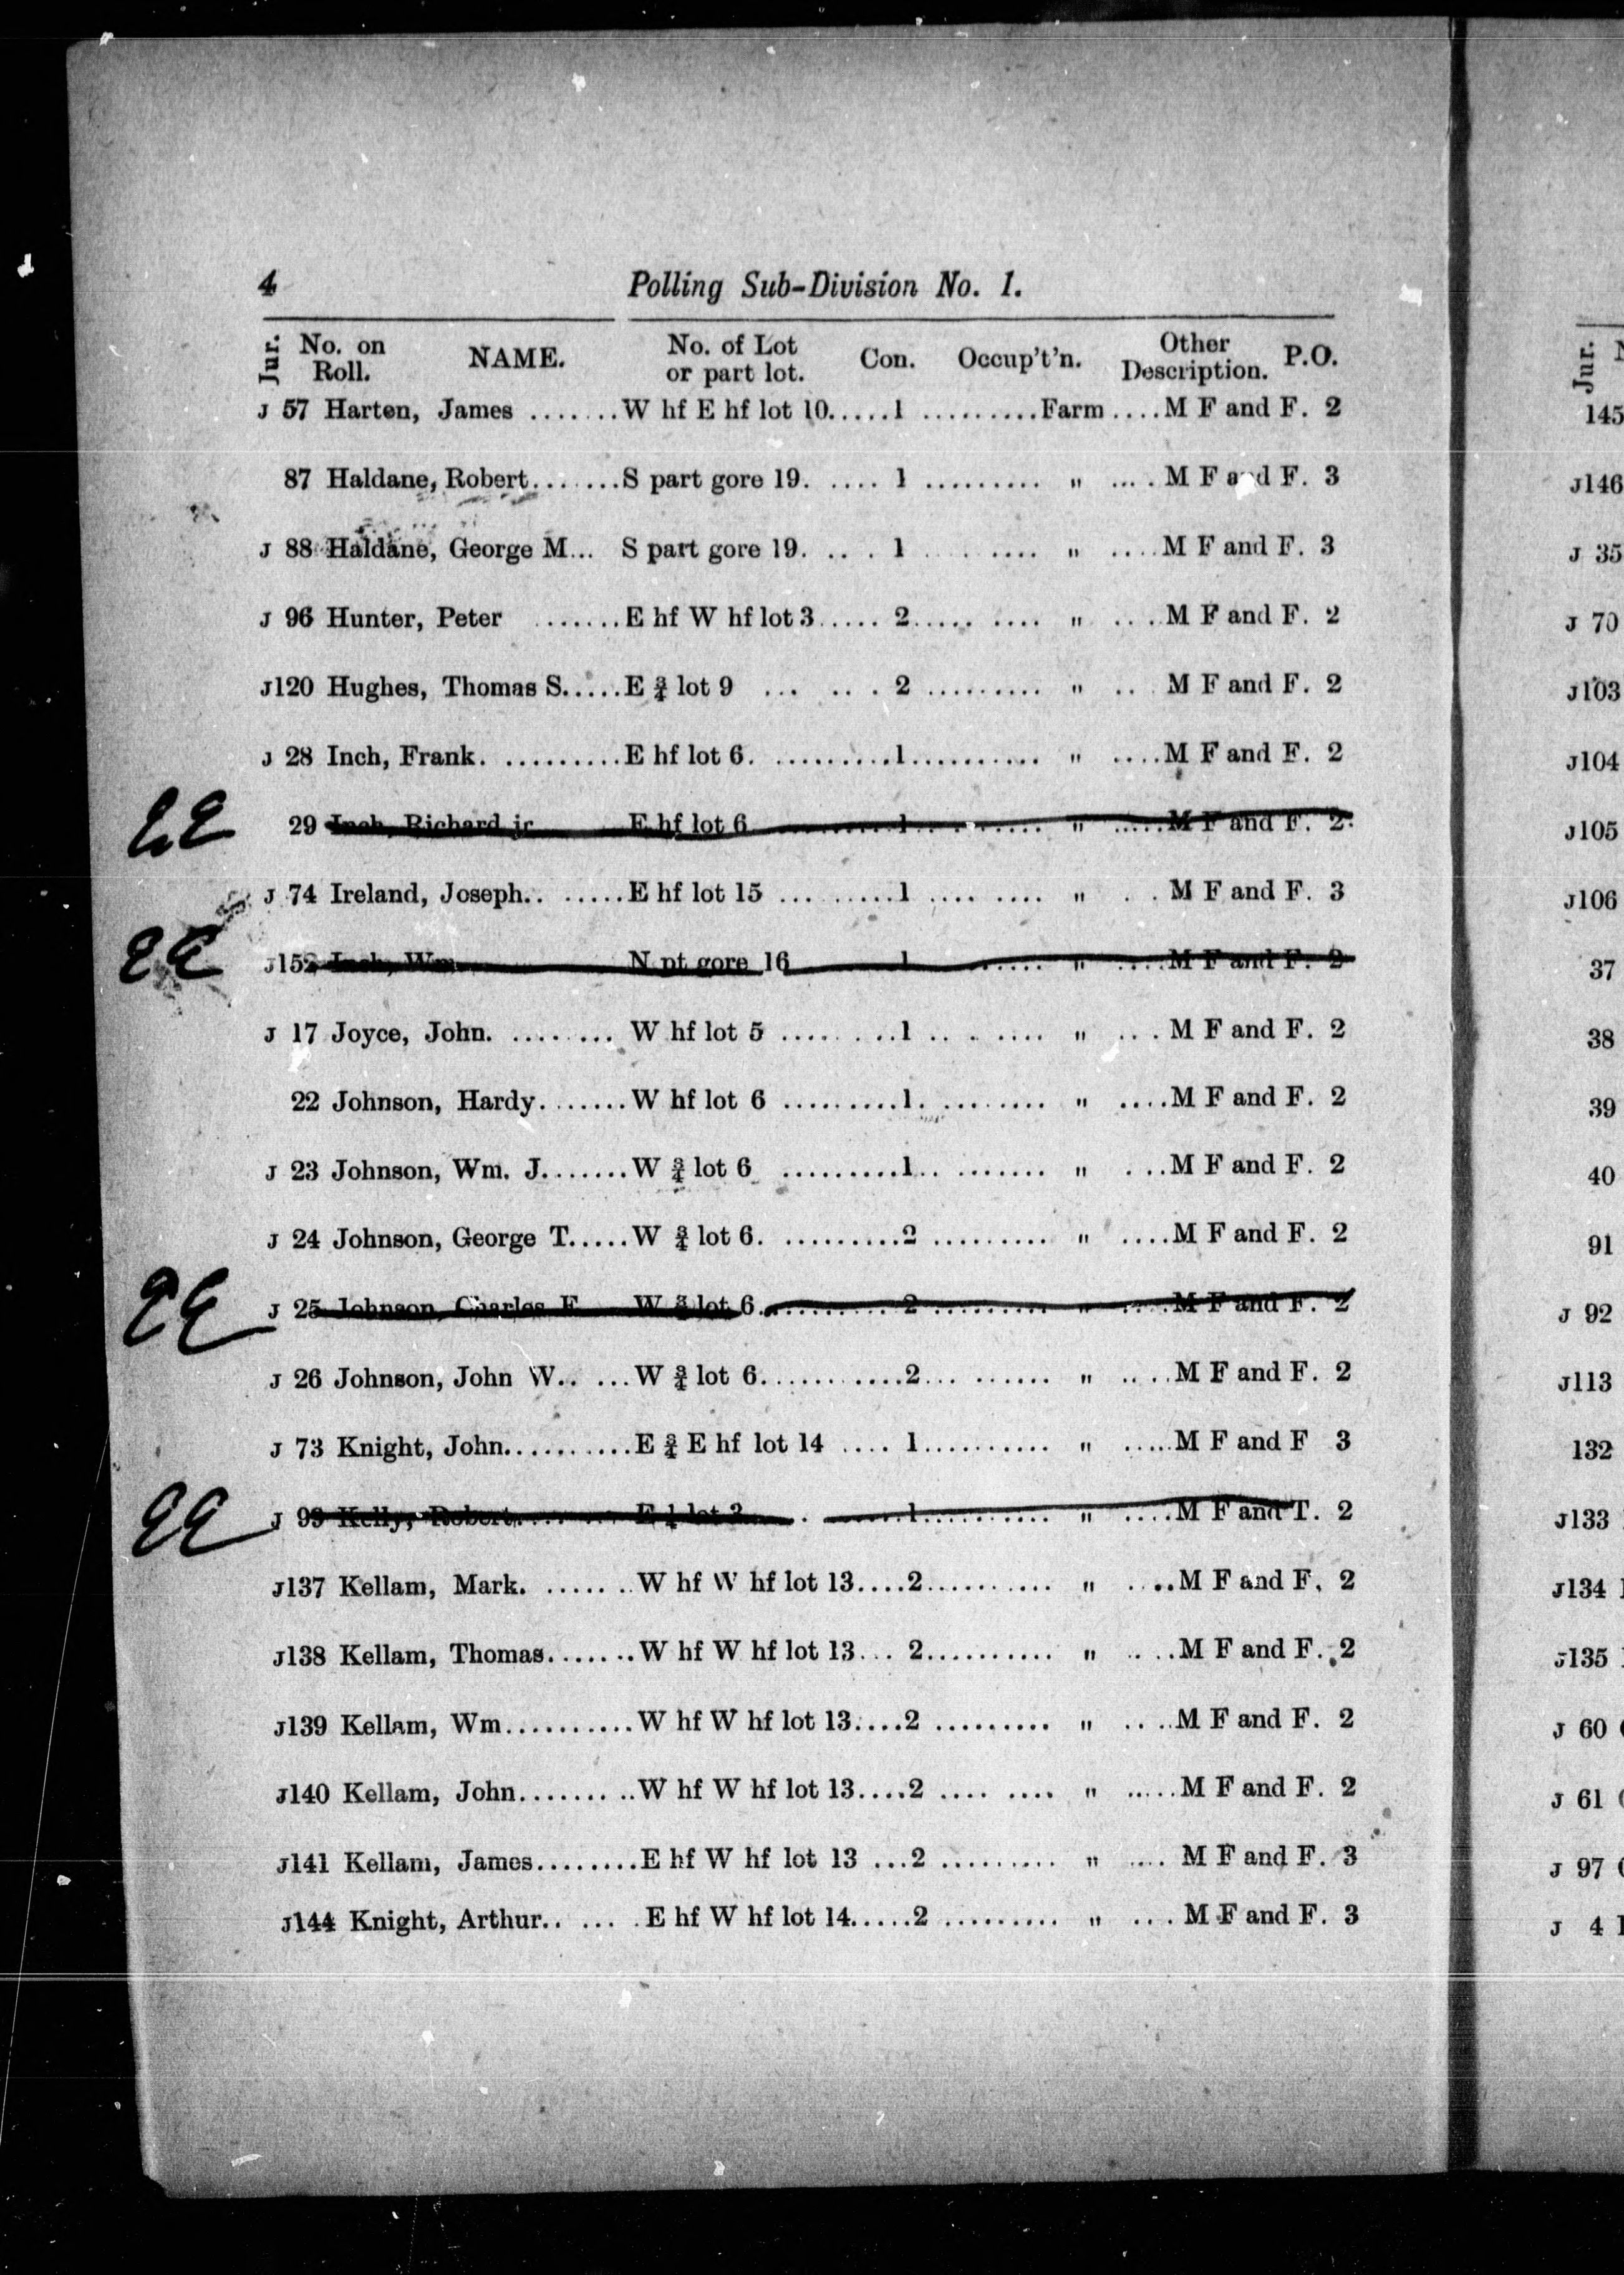 4 Polling Sub-Division No. 1.
Jur. No. on Roll. NAME. No. of Lot or part lot. Con. Occup't'n. Other Description. P.O.
J 57 Harten, James .......W hf E hf lot 10.....1 .........Farm ....M F and F. 2
87 Haldane, Robert.......S part gore 19. .... 1 ......... " ....M F and F. 3
J 88 Haldane, George M... S part gore 19. ... 1 ........ " ....M F and F. 3
J 96 Hunter, Peter .......E hf W hf lot 3..... 2..... .... " ....M F and F. 2
J120 Hughes, Thomas S.....E ¾ lot 9 ... ... 2 ......... " .. M F and F. 2
J 28 Inch, Frank. .........E hf lot 6. .........1.......... " ....M F and F. 2
29 Inch, Richard jr E hf lot 6 .........1.......... " .....M F and F. 2
J 74 Ireland, Joseph.. ......E hf lot 15 .........1 .... .... " . . M F and F. 3
J152 Inch, Wm N pt gore 16 1 ..... " ....M F and F. 2
J 17 Joyce, John. ........ W hf lot 5 ........1 .. . .... " ... M F and F. 2
22 Johnson, Hardy.......W hf lot 6 .........1. ........ " ....M F and F. 2
J 23 Johnson, Wm. J.......W ¾ lot 6 .........1.. ....... " ...M F and F. 2
J 24 Johnson, George T.....W ¾ lot 6. .........2 ......... " ....M F and F. 2
J 25 Johnson, Charles F W ¾ lot 6..........2 ......... " ....M F and F. 2
J 26 Johnson, John W.. ...W ¾ lot 6...........2... ...... " ....M F and F. 2
J 73 Knight, John..........E ¾ E hf lot 14 .... 1.......... " .....M F and F 3
J 93 Kelly, Robert......... E lot 3 .........1.......... " ....M F and T. 2
J137 Kellam, Mark. .......W hf W hf lot 13....2.......... " ....M F and F. 2
J138 Kellam, Thomas.......W hf W hf lot 13... 2.......... " ....M F and F. 2
J139 Kellam, Wm..........W hf W hf lot 13....2 ......... " ....M F and F. 2
J140 Kellam, John.........W hf W hf lot 13....2 .... .... " .....M F and F. 2
J141 Kellam, James........E hf W hf lot 13 ...2 ......... " .... M F and F. 3
J144 Knight, Arthur.. ... .E hf W hf lot 14.....2 ......... " ... M F and F. 3
Jur.
145
J146
J 35
J 70
J103
J104
J105
J106
37
38
39
40
91
J 92
J113
132
J133
J134
J135
J 60
J 61
J 97
J 4